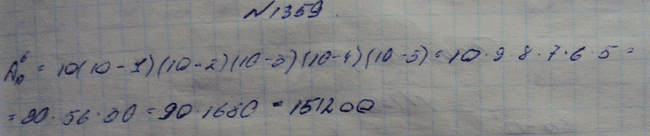 №1359.
A₁₀⁶ = 10(10-1)(10-2)(10-3)(10-4)(10-5)=10·9·8·7·6·5=
=90·56·30=90·1680=151200